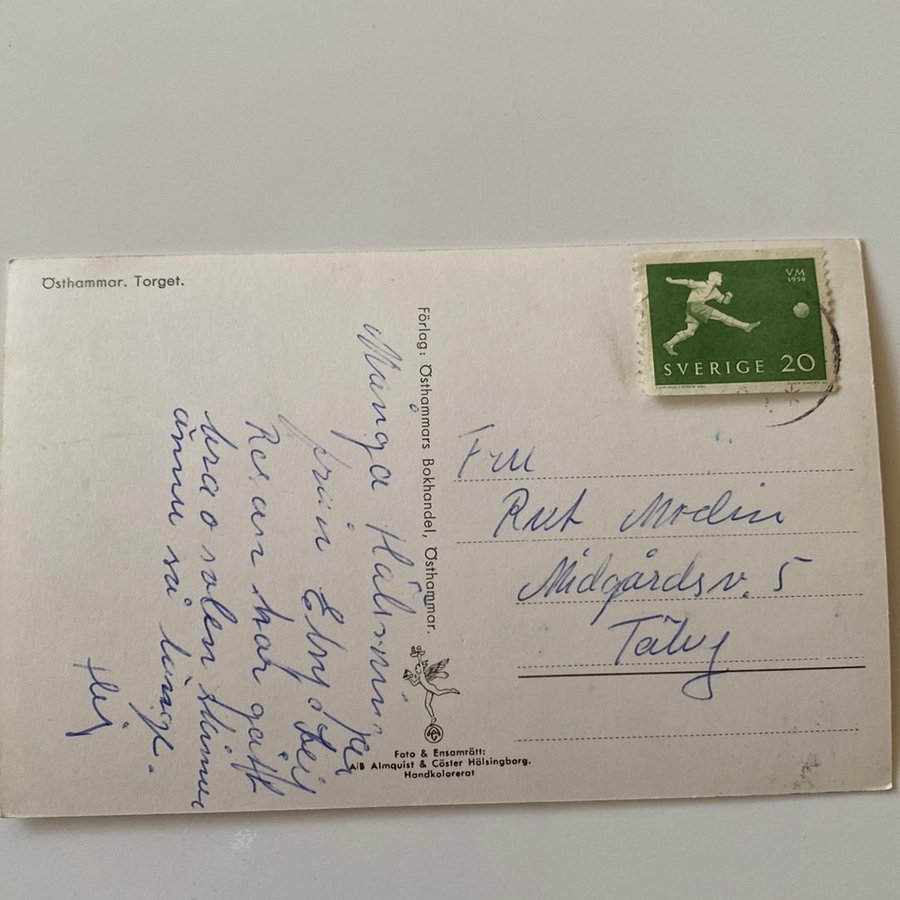 Östhammar. Torget.
Många Hälsningar
från Elny o Leif
Resan har gått
bra o solen skiner
ännu så länge.
Hej
Förlag: Östhammars Bokhandel, Östhammar.
Foto & Ensamrätt:
A/B Almquist & Cöster Hälsingborg.
Handkolorerat
VM
1958
SVERIGE 20
Fru
Rut Modin
Midgårdsv. 5
Täby